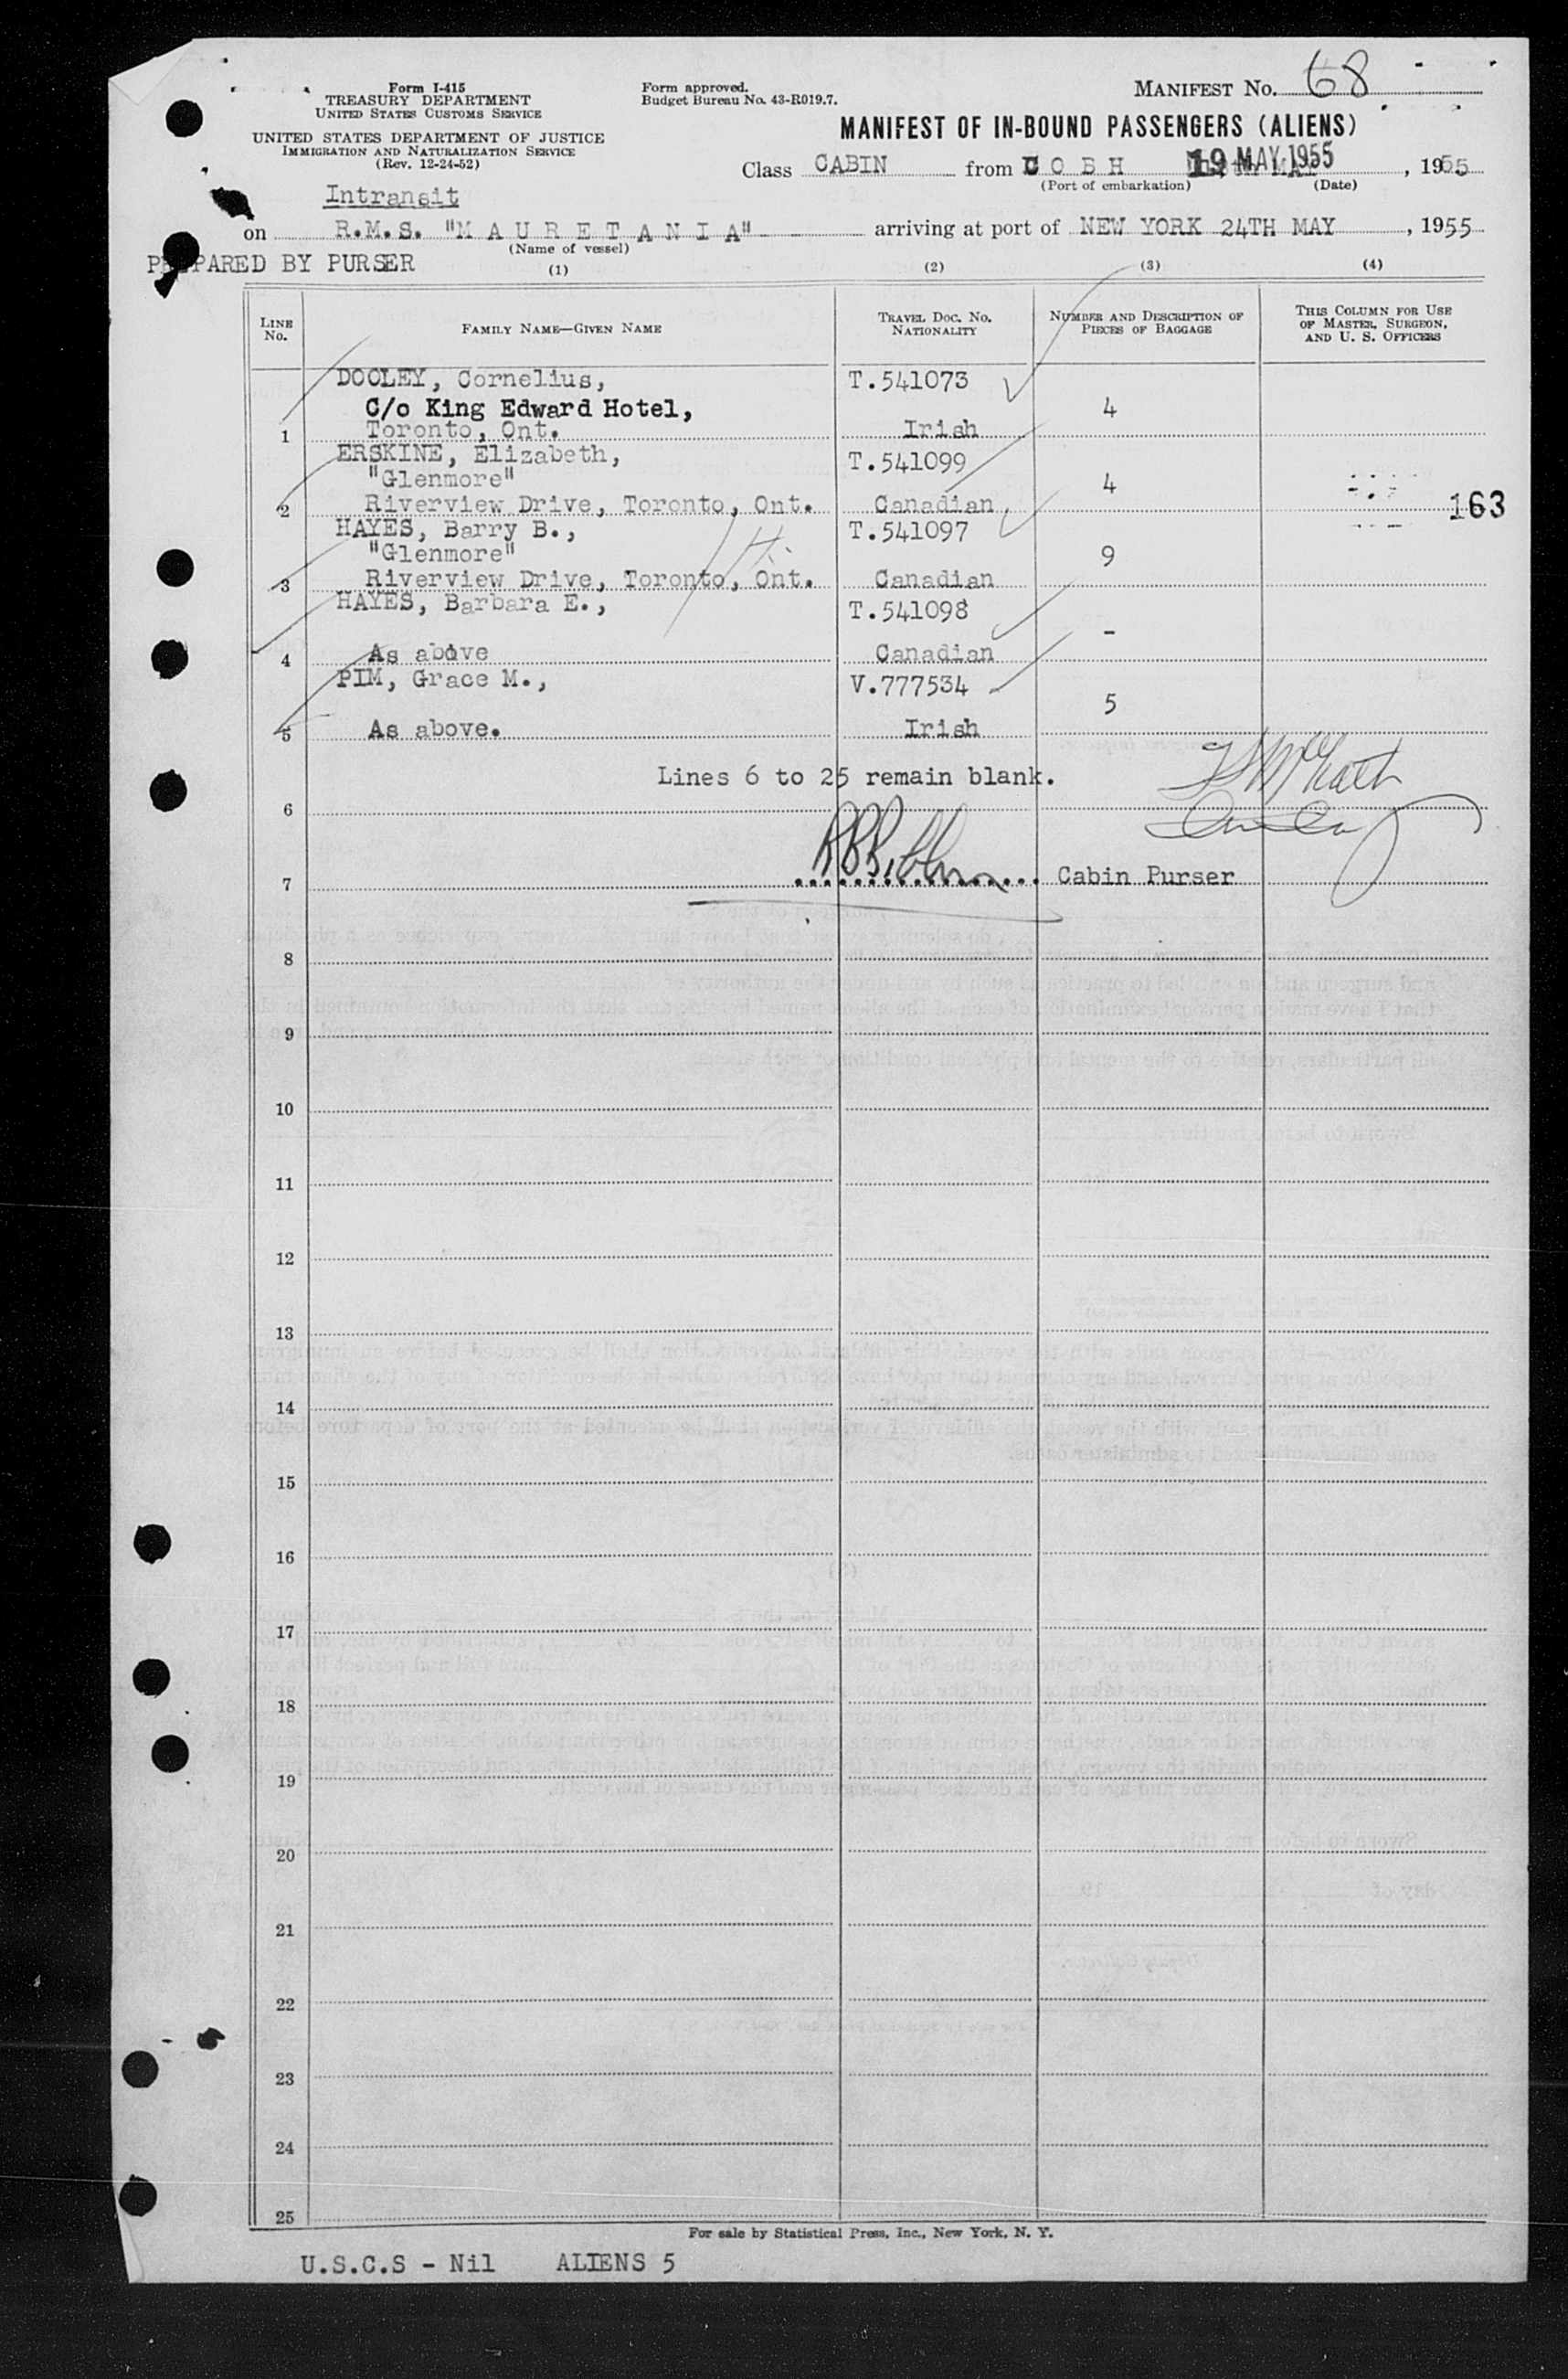 Form I-415
TREASURY DEPARTMENT
UNITED STATES CUSTOMS SERVICE
UNITED STATES DEPARTMENT OF JUSTICE
IMMIGRATION AND NATURALIZATION SERVICE
(Rev. 12-24-52)
Form approved.
Budget Bureau No. 43-R019.7.
MANIFEST No. 68
MANIFEST OF IN-BOUND PASSENGERS (ALIENS)
Class CABIN from COBH 19 MAY 1955, 1955
(Port of embarkation) (Date)
Intransit
on R.M.S. "MAURETANIA" arriving at port of NEW YORK 24TH MAY, 1955
(Name of vessel)
PREPARED BY PURSER
(1) (2) (3) (4)
LINE No. FAMILY NAME—GIVEN NAME TRAVEL DOC. No. NATIONALITY NUMBER AND DESCRIPTION OF PIECES OF BAGGAGE THIS COLUMN FOR USE OF MASTER, SURGEON, AND U. S. OFFICERS
DOOLEY, Cornelius, T.541073
C/o King Edward Hotel, 4
1 Toronto, Ont. Irish
ERSKINE, Elizabeth, T.541099
"Glenmore" 4
2 Riverview Drive, Toronto, Ont. Canadian 163
HAYES, Barry B., T.541097
"Glenmore" 9
3 Riverview Drive, Toronto, Ont. Canadian
HAYES, Barbara E., T.541098
-
4 As above Canadian
PIM, Grace M., V.777534
5
5 As above. Irish
Lines 6 to 25 remain blank.
6
7 Cabin Purser
8
9
10
11
12
13
14
15
16
17
18
19
20
21
22
23
24
25
For sale by Statistical Press, Inc., New York, N. Y.
U.S.C.S - Nil ALIENS 5